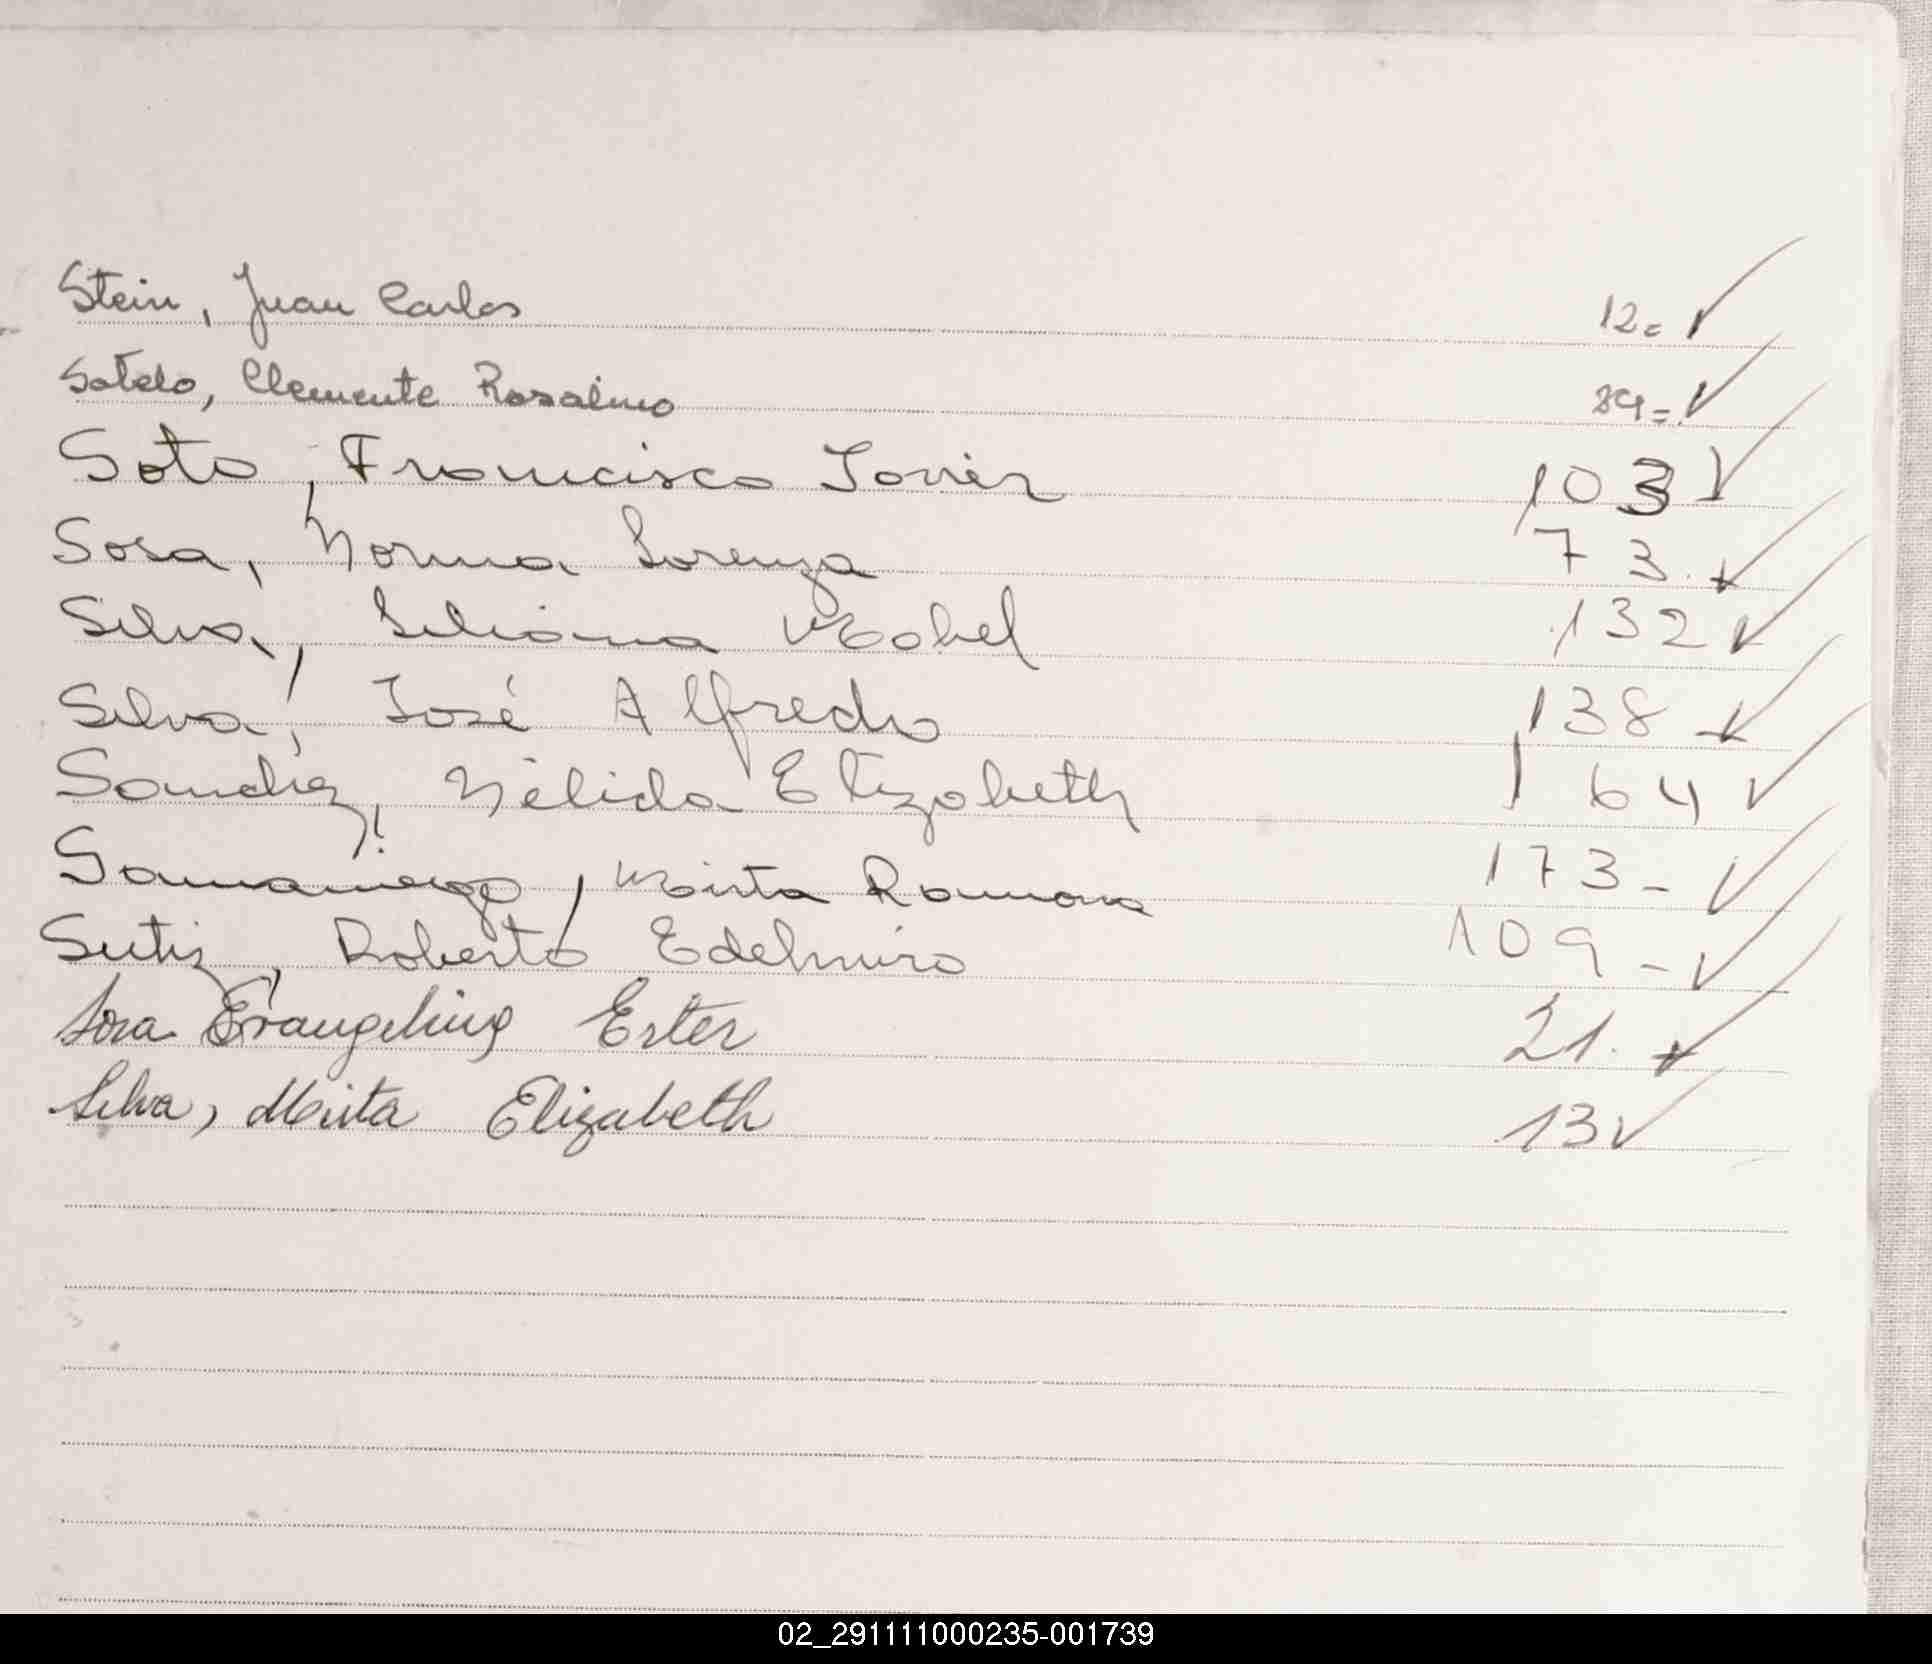 Stein, Juan Carlos 12=
Sotelo, Clemente Rosalino 84=
Soto, Francisco Javier 103
Sosa, Norma Lorenza 73.
Silva, Liliana Mabel 132
Silva, José Alfredo 138
Sanchez, Nélida Elizabeth 164
Samaniego, Mirta Ramona 173-
Roberto Edelmiro 109-
Sosa Evangelina Ester 21.
Silva, Mirta Elizabeth 13
02_291111000235-001739